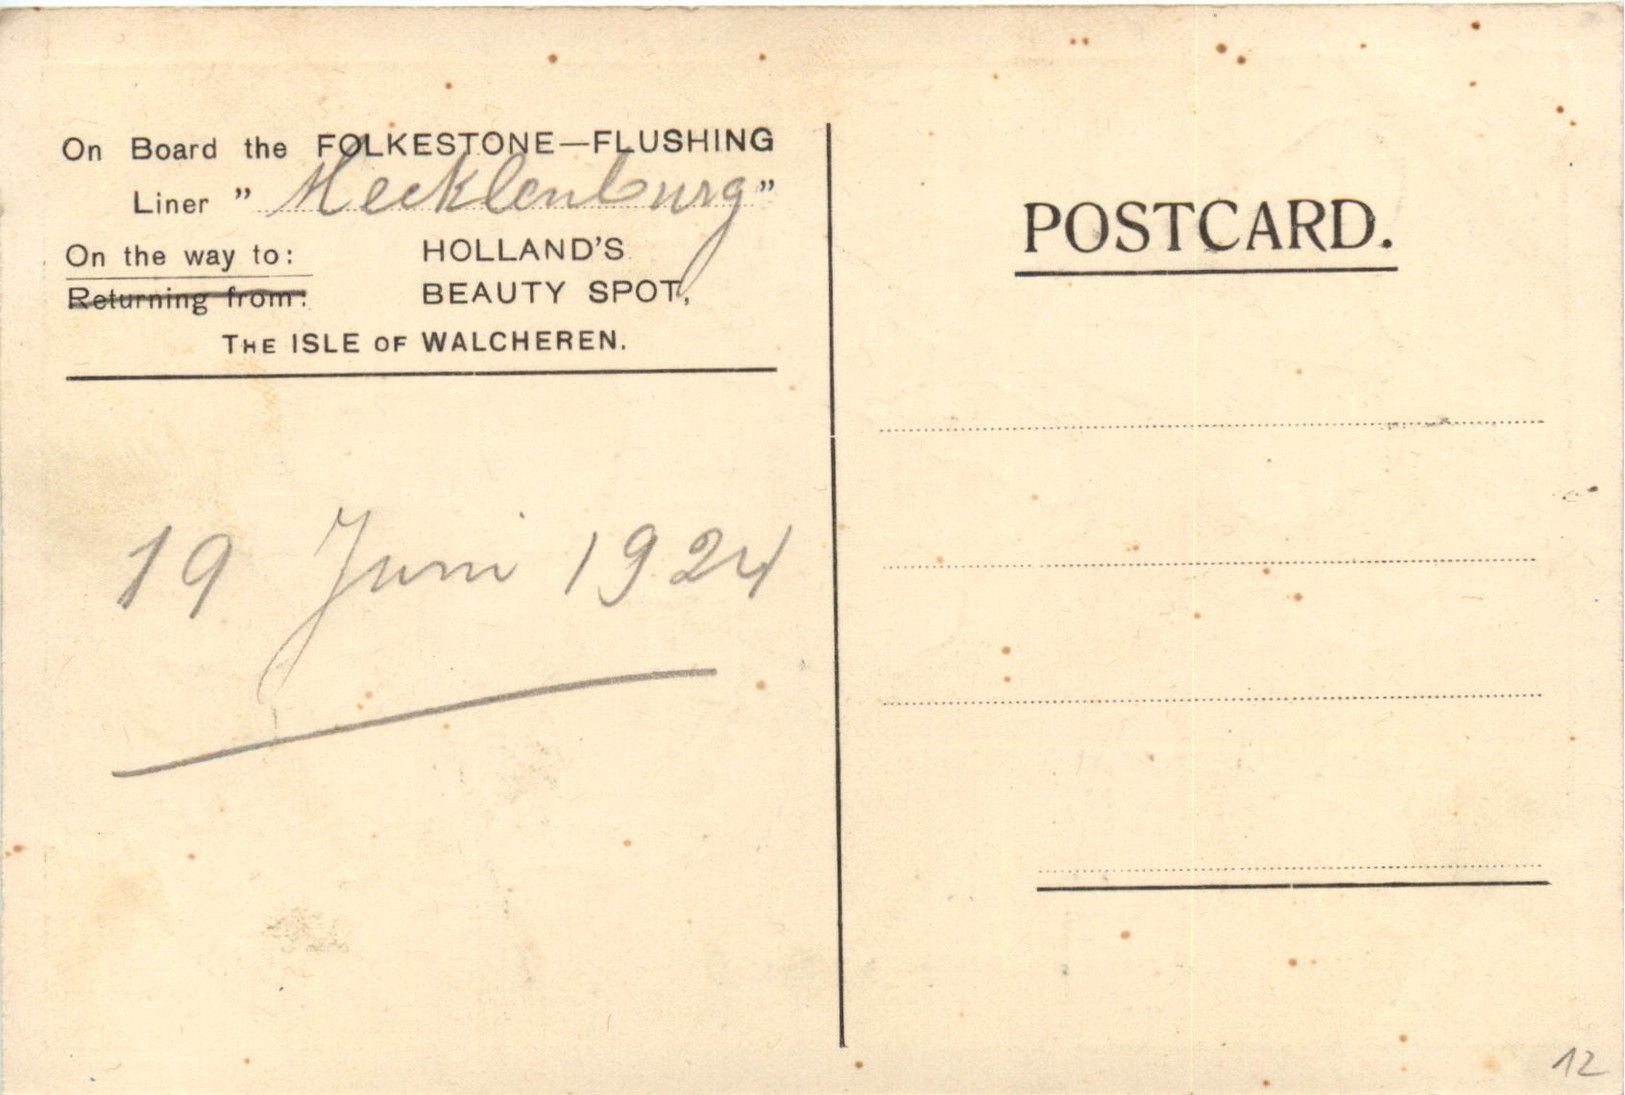 On Board the FOLKESTONE—FLUSHING
Liner " Mecklenburg "
On the way to: HOLLAND'S
Returning from: BEAUTY SPOT,
THE ISLE OF WALCHEREN.
19 Juni 1924
POSTCARD.
12